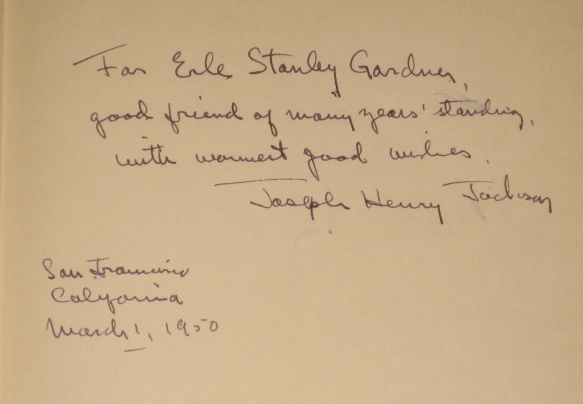 For Erle Stanley Gardner,
good friend of many years' standing,
with warmest good wishes.
Joseph Henry Jackson
San Francisco
California
March 1, 1950